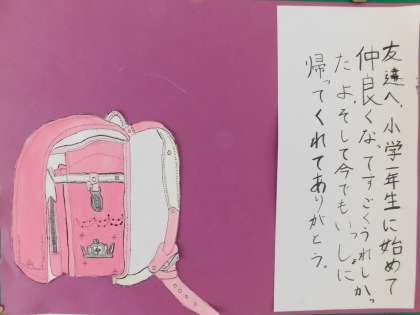 友達へ、小学一年生に始めて
仲良くなってすごくうれしかっ
たよ。そして今でもいっしょに
帰ってくれてありがとう。